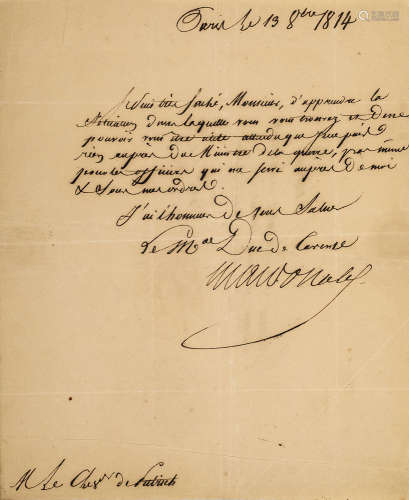 Paris le 13 8bre 1814
Je suis très faché, Monsieur, d'apprendre la
situation dans laquelle vous vous trouvez et de ne
pouvoir vous être utile attendu que je ne puis
rien auprès du Ministre de la guerre, pas même
pour les officiers qui ont servi auprès de moi
& sous mes ordres.
J'ai l'honneur de vous saluer
Le Mal Duc de Tarente
Macdonald
M Le Chevr de